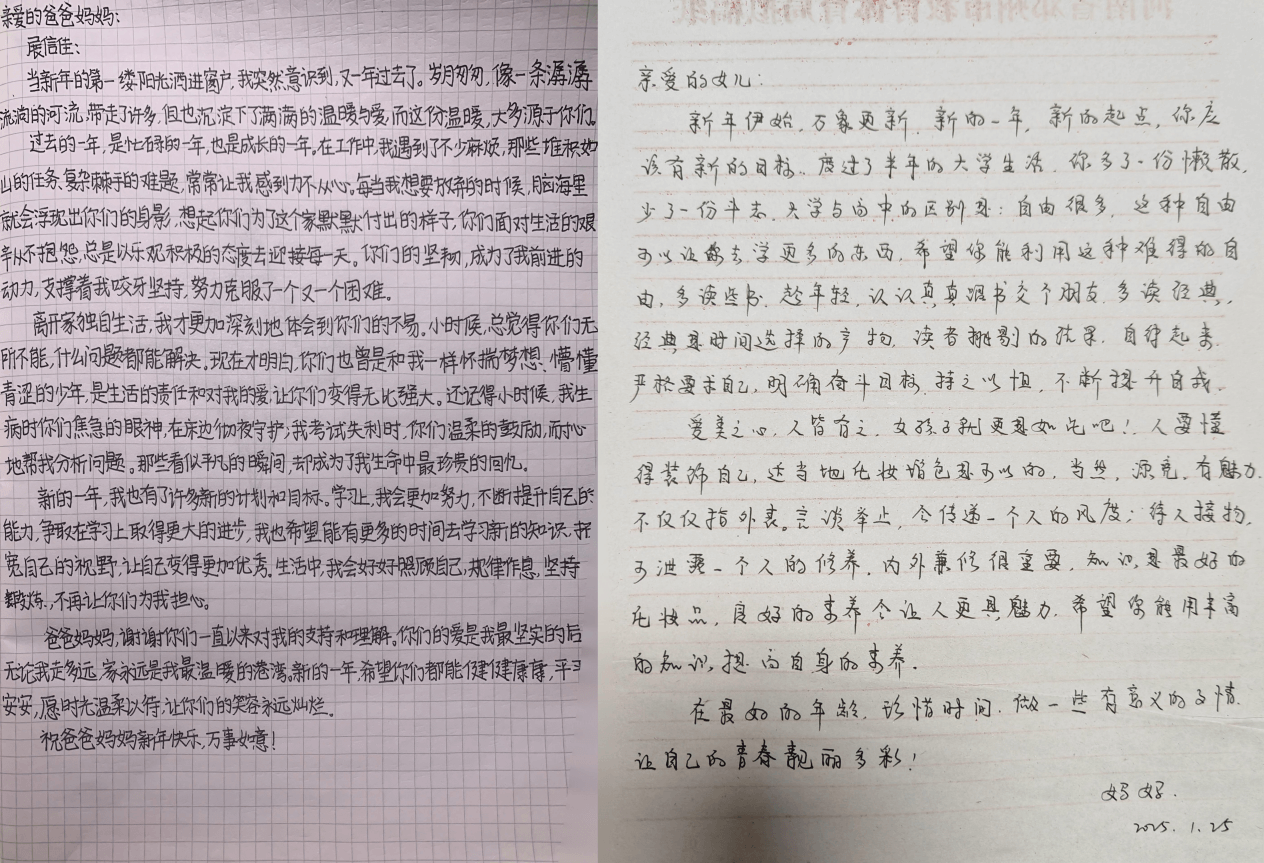 亲爱的爸爸妈妈:
展信佳:
当新年的第一缕阳光洒进窗户,我突然意识到,又一年过去了。岁月匆匆,像一条潺潺
流淌的河流,带走了许多,但也沉淀下了满满的温暖与爱,而这份温暖,大多源于你们。
过去的一年,是忙碌的一年,也是成长的一年。在工作中,我遇到了不少麻烦,那些堆积如
山的任务、复杂棘手的难题,常常让我感到力不从心。每当我想要放弃的时候,脑海里
就会浮现出你们的身影,想起你们为了这个家默默付出的样子,你们面对生活的艰
辛从不抱怨,总是以乐观积极的态度去迎接每一天。你们的坚韧,成为了我前进的
动力,支撑着我咬牙坚持,努力克服了一个又一个困难。
离开家独自生活,我才更加深刻地体会到你们的不易。小时候,总觉得你们无
所不能,什么问题都能解决。现在才明白,你们也曾是和我一样怀揣梦想、懵懂
青涩的少年,是生活的责任和对我的爱,让你们变得无比强大。还记得小时候,我生
病时你们焦急的眼神,在床边彻夜守护;我考试失利时,你们温柔的鼓励,耐心
地帮我分析问题。那些看似平凡的瞬间,却成为了我生命中最珍贵的回忆。
新的一年,我也有了许多新的计划和目标。学习上,我会更加努力,不断提升自己的
能力,争取在学习上取得更大的进步,我也希望能有更多的时间去学习新的知识、拓
宽自己的视野,让自己变得更加优秀。生活中,我会好好照顾自己,规律作息,坚持
锻炼,不再让你们为我担心。
爸爸妈妈,谢谢你们一直以来对我的支持和理解。你们的爱是我最坚实的后
无论我走多远,家永远是我最温暖的港湾。新的一年,希望你们都能健健康康,平平
安安,愿时光温柔以待,让你们的笑容永远灿烂。
祝爸爸妈妈新年快乐,万事如意!
亲爱的女儿:
新年伊始,万象更新,新的一年,新的起点,你应
该有新的目标。度过了半年的大学生活,你多了一份懒散,
少了一份斗志,大学与高中的区别是:自由很多,这种自由
可以让你去学更多的东西,希望你能利用这种难得的自
由,多读些书,趁年轻,认认真真跟书交个朋友,多读经典,
经典是时间选择的产物,读者甄别的结果,自律起来,
严格要求自己,明确奋斗目标,持之以恒,不断提升自我。
爱美之心,人皆有之,女孩子就更是如此吧!人要懂
得装饰自己,适当地化妆增色是可以的,当然,漂亮,有魅力
不仅仅指外表。言谈举止,会传递一个人的风度;待人接物,
可泄露一个人的修养,内外兼修很重要,知识是最好的
化妆品,良好的素养会让人更具魅力,希望你能用丰富
的知识,提高自身的素养。
在最好的年龄,珍惜时间,做一些有意义的事情,
让自己的青春靓丽多彩!
妈妈.
2025.1.25